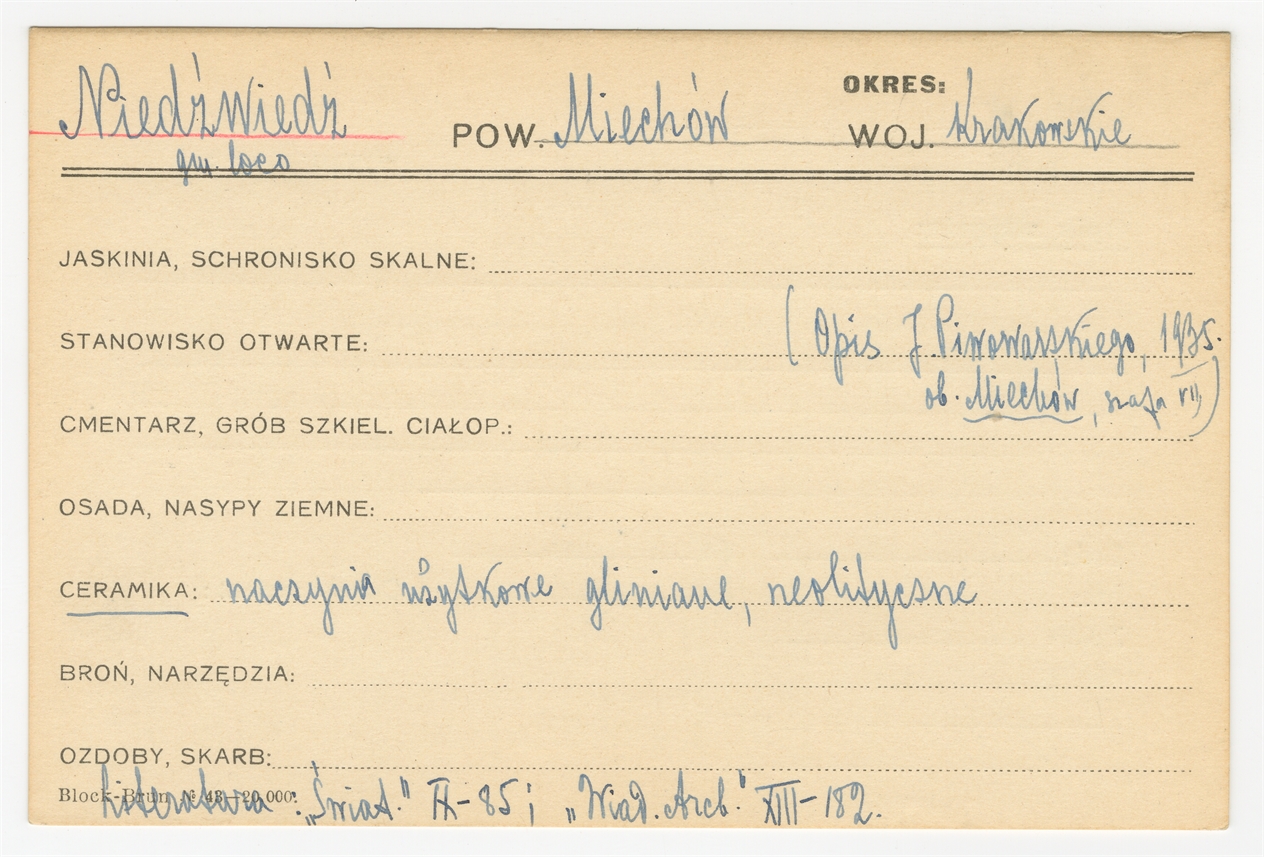 OKRES:
Niedźwiedź POW. Miechów WOJ. krakowskie
gm. loco
JASKINIA, SCHRONISKO SKALNE:
(Opis J. Piwowarskiego, 1935.
STANOWISKO OTWARTE:
ob. Miechów, szafa VII)
CMENTARZ, GRÓB SZKIEL. CIAŁOP.:
OSADA, NASYPY ZIEMNE:
CERAMIKA: naczynia użytkowe gliniane, neolityczne
BROŃ, NARZĘDZIA:
OZDOBY, SKARB:
Literatura: „Świat." IX-85; „Wiad. Arch." XIII-182.
Block-Brun № 48—20,000.